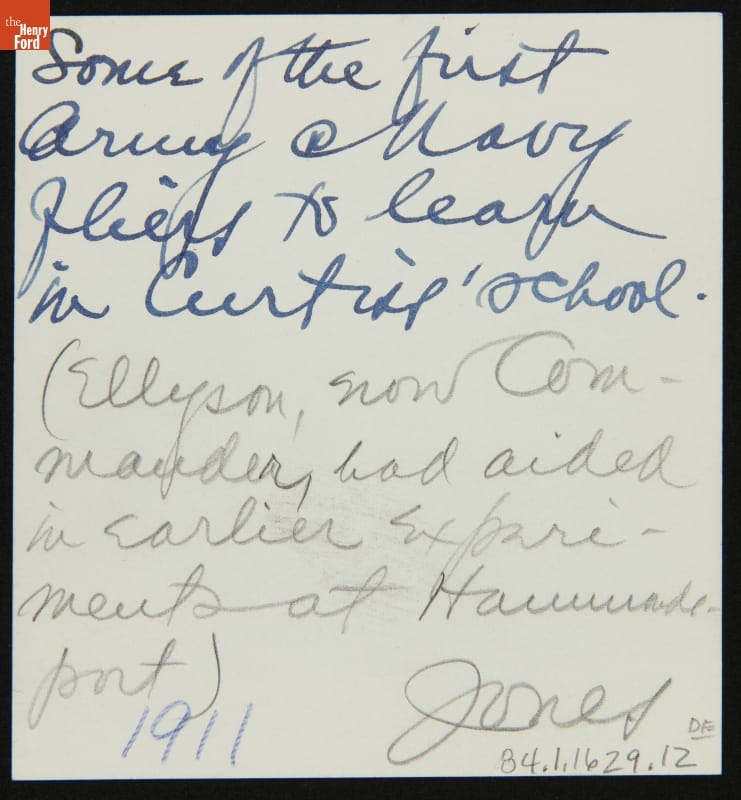 the
Henry
Ford
Some of the first
Army & Navy
fliers to learn
in Curtiss' school.
(Ellyson, now Com-
mander, had aided
in earlier experi-
ments at Hammonds-
port)
Jones
1911
DF
84.1.1629.12